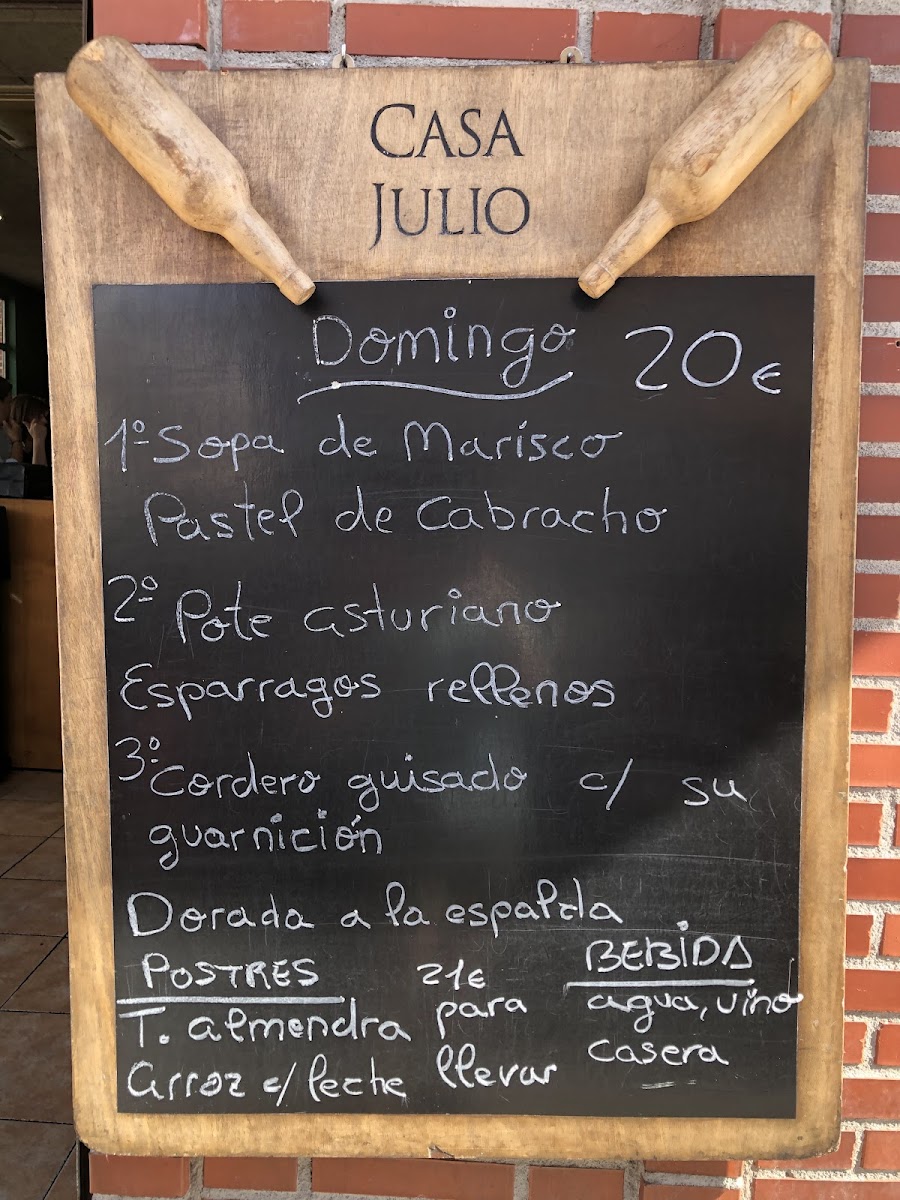 CASA
JULIO
Domingo 20€
1º Sopa de Marisco
Pastel de Cabracho
2º Pote asturiano
Esparragos rellenos
3º Cordero guisado c/ su
guarnición
Dorada a la espalda
POSTRES
T. almendra
arroz c/ leche
21€
para
llevar
BEBIDA
agua, vino
casera